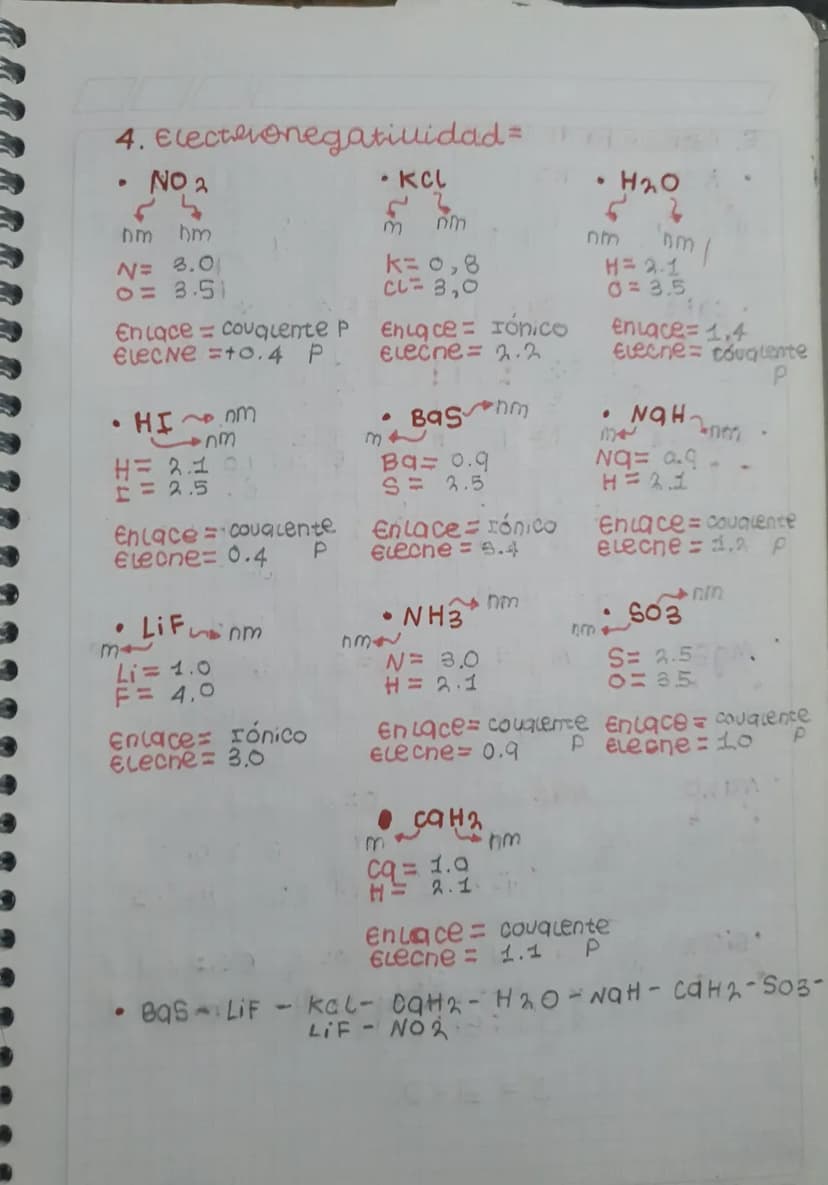 4. Electronegatividad=
• NO2
nm nm
N= 3.0
O= 3.5
Enlace = covalente P
Elecne =+0.4 P
• KCl
m nm
K= 0,8
Cl= 3,0
Enlace = Iónico
Elecne = 2.2
• H2O
nm nm
H= 2.1
O= 3.5
Enlace= 1,4
Elecne= covalente
P
• HI nm
nm
H= 2.1
I= 2.5
Enlace= covalente
Elecne= 0.4 P
• BaS nm
m
Ba= 0.9
S= 2.5
Enlace= Iónico
Elecne = 3.4
• NaH
m nm
Na= 0.9
H= 2.1
Enlace= covalente
Elecne = 1.2 P
• LiF nm
m
Li= 1.0
F= 4.0
Enlace= Iónico
Elecne= 3.0
• NH3 nm
nm
N= 3.0
H= 2.1
Enlace= covalente
Elecne= 0.9 P
• SO3 nm
nm
S= 2.5
O= 3.5
Enlace= covalente
Elecne= 1.0 P
• CaH2
m nm
Ca= 1.0
H= 2.1
Enlace= covalente
Elecne= 1.1 P
• BaS - LiF - KCl - CaH2 - H2O - NaH - CaH2 - SO3 -
LiF - NO2